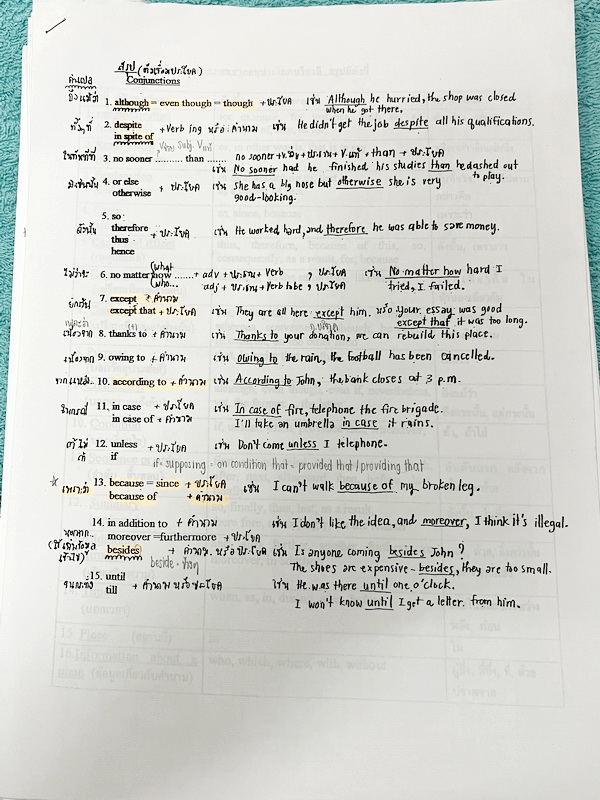 สรุป (ตัวเชื่อมประโยค)
คำแปล Conjunctions
ถึงแม้ว่า 1. although = even though = though + ประโยค เช่น Although he hurried, the shop was closed
when he got there.
ทั้งๆที่ 2. despite + Verb ing หรือ คำนาม เช่น He didn't get the job despite all his qualifications.
in spite of
ในทันทีที่ 3. no sooner ........... than ....... no sooner + V.ช่วย + ประธาน + V.แท้ + than + ประโยค
เช่น No sooner had he finished his studies than he dashed out
to play.
มิเช่นนั้น 4. or else + ประโยค เช่น she has a big nose but otherwise she is very
otherwise good-looking.
5. so
ดังนั้น therefore + ประโยค เช่น He worked hard, and therefore he was able to save money.
thus
hence
(what
ไม่ว่าจะ 6. no matter how ....... + adv + ประธาน + Verb , ประโยค เช่น No matter how hard I
(who... adj + ประธาน + Verb to be , ประโยค tried, I failed.
ยกเว้น 7. except + คำนาม
except that + ประโยค เช่น They are all here except him. หรือ Your essay was good
except that it was too long.
เนื่องจาก 8. thanks to + คำนาม เช่น Thanks to your donation, we can rebuild this place.
เนื่องจาก 9. owing to + คำนาม เช่น owing to the rain, the football has been cancelled.
10. according to + คำนาม เช่น According to John, the bank closes at 3 p.m.
ในกรณี 11. in case + ประโยค เช่น In case of fire, telephone the fire brigade.
in case of + คำนาม I'll take an umbrella in case it rains.
ถ้าไม่ 12. unless + ประโยค เช่น Don't come unless I telephone.
ถ้า if
if = supposing = on condition that = provided that / providing that
☆ เพราะว่า 13. because = since + ประโยค เช่น I can't walk because of my broken leg.
because of + คำนาม
14. in addition to + คำนาม เช่น I don't like the idea, and moreover, I think it's illegal.
moreover =furthermore + ประโยค
besides + คำนาม หรือ ประโยค เช่น Is anyone coming besides John ?
The shoes are expensive - besides, they are too small.
จนกระทั่ง 15. until + คำนาม หรือ ประโยค เช่น He was there until one o'clock.
till I won't know until I get a letter from him.